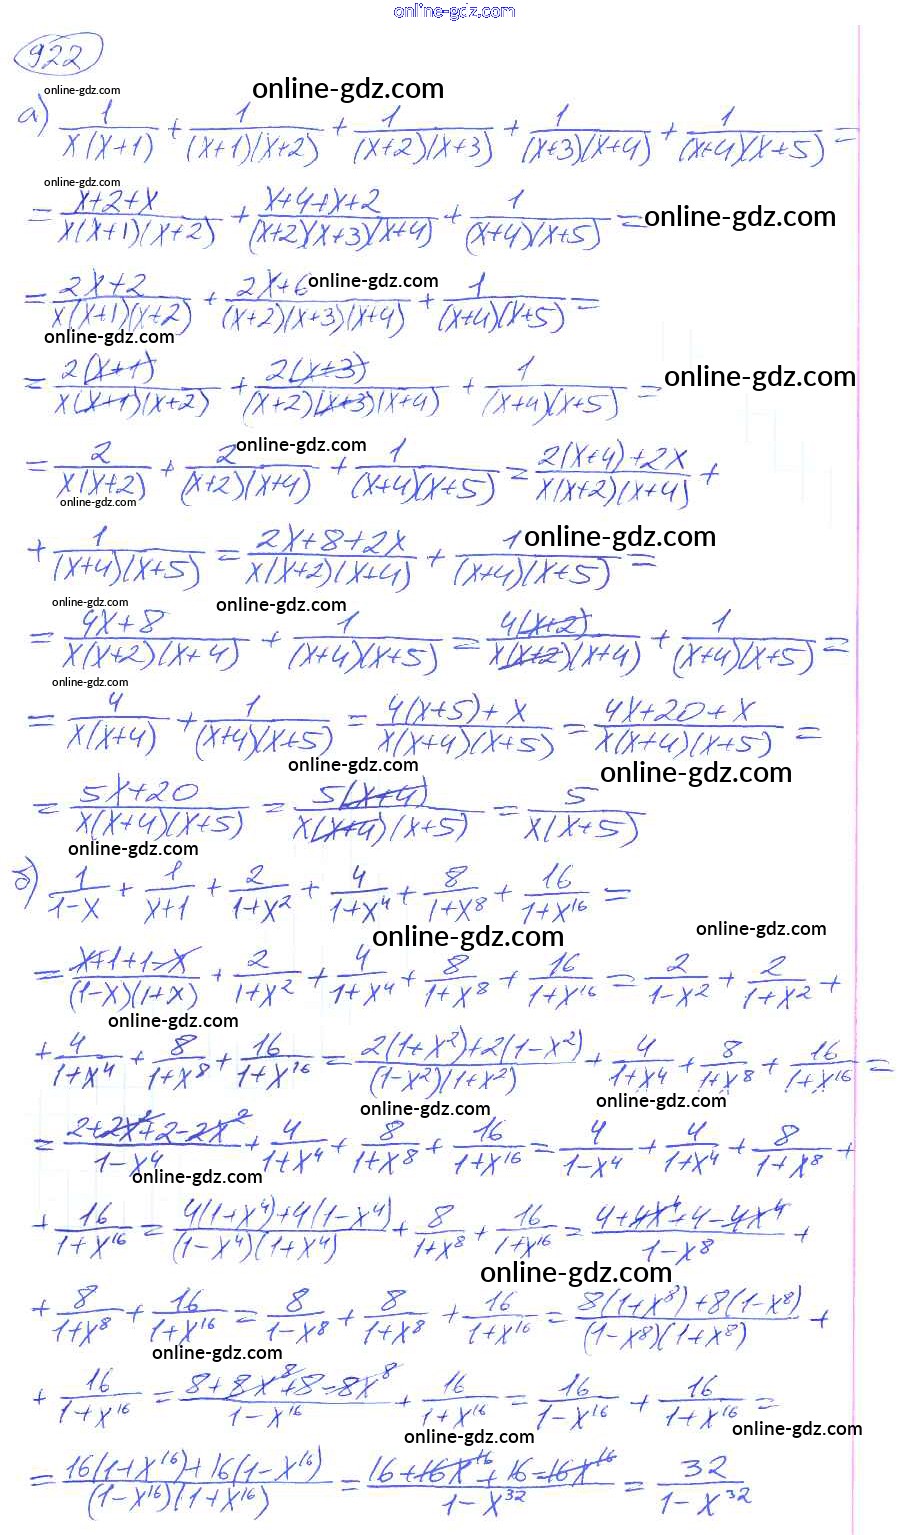 online-gdz.com
922
online-gdz.com online-gdz.com
а) 1/(x(x+1)) + 1/((x+1)(x+2)) + 1/((x+2)(x+3)) + 1/((x+3)(x+4)) + 1/((x+4)(x+5)) =
online-gdz.com
= (x+2+x)/(x(x+1)(x+2)) + (x+4+x+2)/((x+2)(x+3)(x+4)) + 1/((x+4)(x+5)) = online-gdz.com
online-gdz.com
= (2x+2)/(x(x+1)(x+2)) + (2x+6)/((x+2)(x+3)(x+4)) + 1/((x+4)(x+5)) =
online-gdz.com
= 2(x+1)/(x(x+1)(x+2)) + 2(x+3)/((x+2)(x+3)(x+4)) + 1/((x+4)(x+5)) = online-gdz.com
online-gdz.com
= 2/(x(x+2)) + 2/((x+2)(x+4)) + 1/((x+4)(x+5)) = (2(x+4)+2x)/(x(x+2)(x+4)) +
online-gdz.com
online-gdz.com
+ 1/((x+4)(x+5)) = (2x+8+2x)/(x(x+2)(x+4)) + 1/((x+4)(x+5)) =
online-gdz.com online-gdz.com
= (4x+8)/(x(x+2)(x+4)) + 1/((x+4)(x+5)) = 4(x+2)/(x(x+2)(x+4)) + 1/((x+4)(x+5)) =
online-gdz.com
= 4/(x(x+4)) + 1/((x+4)(x+5)) = (4(x+5)+x)/(x(x+4)(x+5)) = (4x+20+x)/(x(x+4)(x+5)) =
online-gdz.com online-gdz.com
= (5x+20)/(x(x+4)(x+5)) = 5(x+4)/(x(x+4)(x+5)) = 5/(x(x+5))
online-gdz.com
б) 1/(1-x) + 1/(x+1) + 2/(1+x²) + 4/(1+x⁴) + 8/(1+x⁸) + 16/(1+x¹⁶) =
online-gdz.com online-gdz.com
= (x+1+1-x)/((1-x)(1+x)) + 2/(1+x²) + 4/(1+x⁴) + 8/(1+x⁸) + 16/(1+x¹⁶) = 2/(1-x²) + 2/(1+x²) +
online-gdz.com
+ 4/(1+x⁴) + 8/(1+x⁸) + 16/(1+x¹⁶) = (2(1+x²)+2(1-x²))/((1-x²)(1+x²)) + 4/(1+x⁴) + 8/(1+x⁸) + 16/(1+x¹⁶) =
online-gdz.com online-gdz.com
= (2+2x²+2-2x²)/(1-x⁴) + 4/(1+x⁴) + 8/(1+x⁸) + 16/(1+x¹⁶) = 4/(1-x⁴) + 4/(1+x⁴) + 8/(1+x⁸) +
online-gdz.com
+ 16/(1+x¹⁶) = (4(1+x⁴)+4(1-x⁴))/((1-x⁴)(1+x⁴)) + 8/(1+x⁸) + 16/(1+x¹⁶) = (4+4x⁴+4-4x⁴)/(1-x⁸) +
online-gdz.com
+ 8/(1+x⁸) + 16/(1+x¹⁶) = 8/(1-x⁸) + 8/(1+x⁸) + 16/(1+x¹⁶) = (8(1+x⁸)+8(1-x⁸))/((1-x⁸)(1+x⁸)) +
online-gdz.com
+ 16/(1+x¹⁶) = (8+8x⁸+8-8x⁸)/(1-x¹⁶) + 16/(1+x¹⁶) = 16/(1-x¹⁶) + 16/(1+x¹⁶) =
online-gdz.com online-gdz.com
= (16(1+x¹⁶)+16(1-x¹⁶))/((1-x¹⁶)(1+x¹⁶)) = (16+16x¹⁶+16-16x¹⁶)/(1-x³²) = 32/(1-x³²)